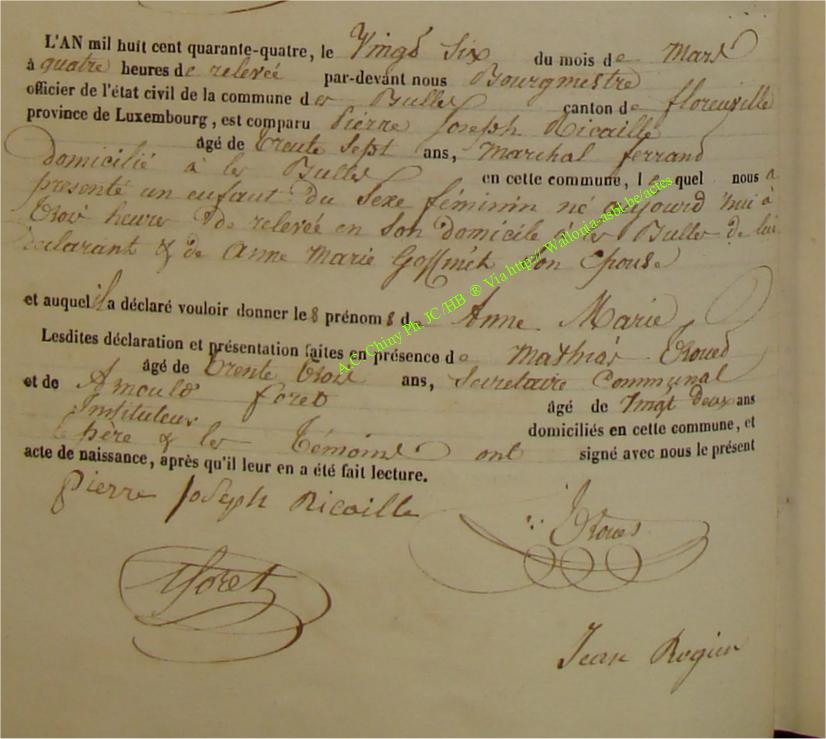 L'AN mil huit cent quarante-quatre, le Vingt Six du mois de Mars
à quatre heures de relevée par-devant nous Bourgmestre
officier de l'état civil de la commune des Bulles canton de florenville
province de Luxembourg, est comparu Pierre Joseph Ricaille
âgé de trente Sept ans, Marchal ferrand
domicilié à les Bulles en cette commune, lequel nous a
présenté un enfant du Sexe féminin né aujourd'hui à
trois heures de relevée en Son domicile à les Bulles de lui
déclarant & de Anne Marie Goffinet Son Epouse
et auquel il a déclaré vouloir donner les prénoms de Anne Marie
Lesdites déclaration et présentation faites en présence de Mathias
âgé de trente trois ans, Secretaire Communal
et de Arnould foret âgé de Vingt deux ans
Instituteur domiciliés en cette commune, et
le père & les témoins ont signé avec nous le présent
acte de naissance, après qu'il leur en a été fait lecture.
Pierre Joseph Ricaille
foret
Jean Rogier
A.C. Chiny Ph. JC/HB ® Via http://Wallonia-asbl.be/actes